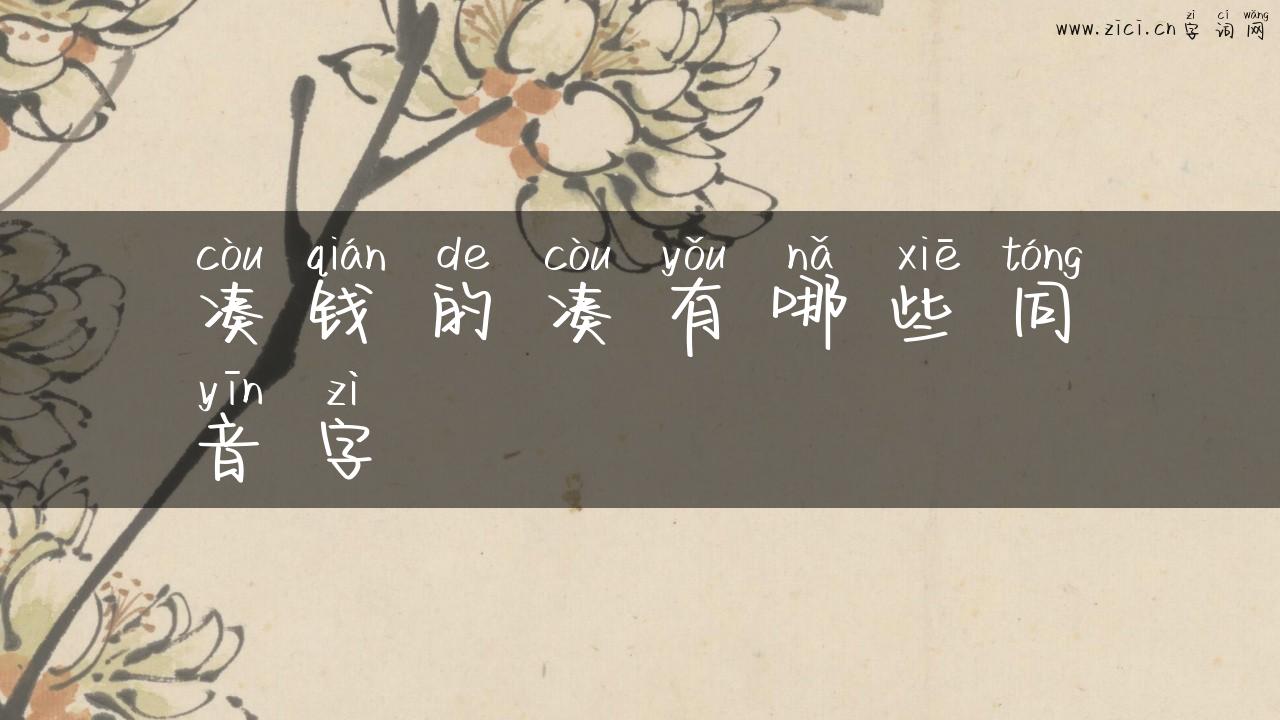 zì cí wǎng
www.zici.cn 字 词 网
còu qián de còu yǒu nǎ xiē tóng
凑 钱 的 凑 有 哪 些 同
yīn zì
音 字